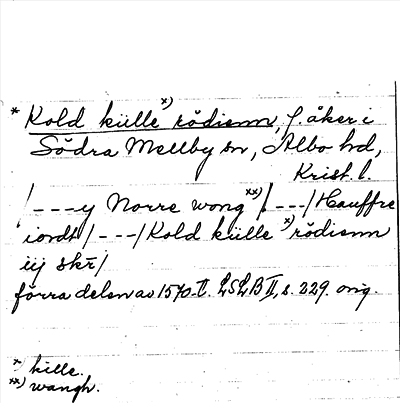 x)
* Kold külle rödienn, f. åker i
Södra Mellby sn, Albo hd,
Krist. l.
/---y Norre wong xx) /---/ Hauffre
iordt /---/ Kold külle x) rödienn
iij skr̄ /
förra delen av 1570-t. LSLB II, s. 229. orig.
x) kille.
xx) wangh.